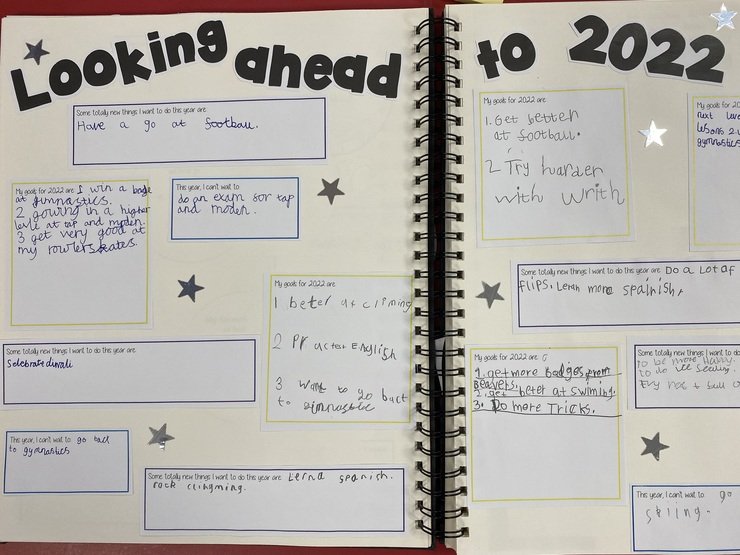 Looking ahead
Some totally new things I want to do this year are
Have a go at football.
My goals for 2022 are I win a bage
at gumnastics.
2 gowing in a higher
levle at tap and modern.
3 get very good at
my rowlerskates.
This year, I can't wait to
do an exam for tap
and modern.
My goals for 2022 are
1 beter at climing
2 Practest English
3 Want to go back
to gimnastic
Some totally new things I want to do this year are
Selebrate diwali
This year, I can't wait to go back
to gymnastics
Some totally new things I want to do this year are Lerna spanish.
rock clingming.
to 2022
My goals for 2022 are
1. Get better
at football.
2 Try harder
with writh
My goals for 20
next leve
lesons 2.
gymnastics
Some totally new things I want to do this year are Do a Lot of
flips. Learn more spainish,
My goals for 2022 are
1. get more badges from
Beavers.
2. get beter at swiming.
3. Do more Tricks.
Some totally new things I want to do
To be more Happy.
To do ice
Try not
This year, I can't wait to go